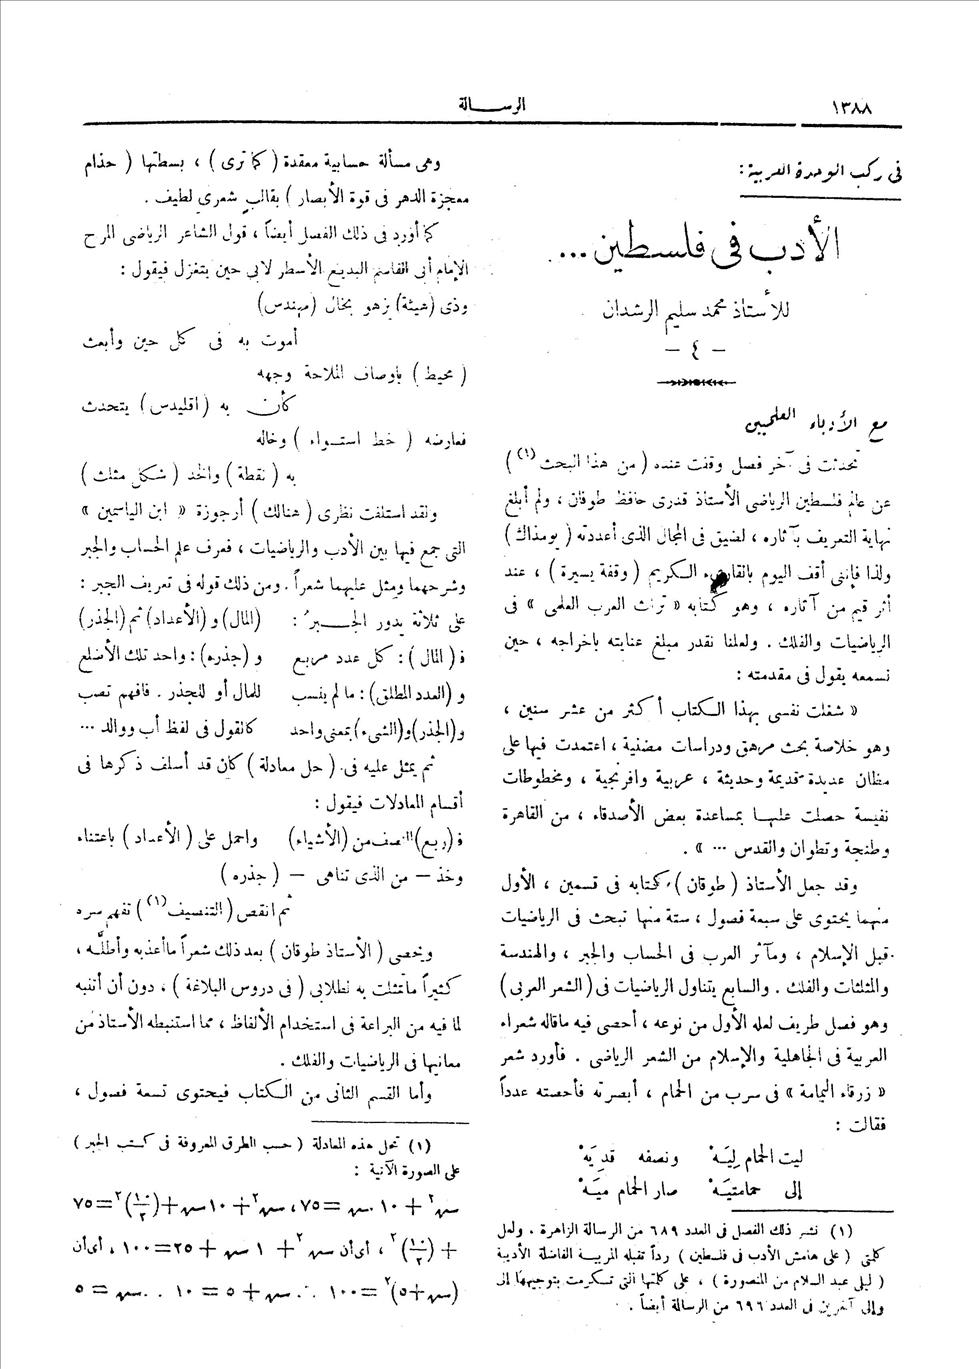 ١٣٨٨
الرسـالة
فى ركب الوحدة العربية :
الأدب فى فلسطين ...
للأستاذ محمد سليم الرشدان
— ٤ —
مع الأدباء العلميين
تحدثت فى آخر فصل وقفت عنده ( من هذا البحث (١) )
عن عالم فلسطين الرياضى الأستاذ قدرى حافظ طوقان ، ولم أبلغ
نهاية التعريف بآثاره ، لضيق فى المجال الذى أعددته ( يومذاك )
ولذا فإننى أقف اليوم بالقارىء الكريم ( وقفة يسيرة ) ، عند
أثر قيم من آثاره ، وهو كتابه « تراث العرب العلمى » فى
الرياضيات والفلك . ولعلنا نقدر مبلغ عنايته باخراجه ، حين
نسمعه يقول فى مقدمته :
« شغلت نفسى بهذا الكتاب أكثر من عشر سنين ،
وهو خلاصة بحث مرهق ودراسات مضنية ، اعتمدت فيها على
مظان عديدة قديمة وحديثة ، عربية وافرنجية ، ومخطوطات
نفيسة حصلت عليها بمساعدة بعض الأصدقاء ، من القاهرة
وطنجة وتطوان والقدس ... » .
وقد جعل الأستاذ ( طوقان ) كتابه فى قسمين ، الأول
منهما يحتوى على سبعة فصول ، ستة منها تبحث فى الرياضيات
قبل الإسلام ، ومآثر العرب فى الحساب والجبر ، والهندسة
والمثلثات والفلك . والسابع يتناول الرياضيات فى ( الشعر العربى )
وهو فصل طريف لعله الأول من نوعه ، أحصى فيه ماقاله شعراء
العربية فى الجاهلية والإسلام من الشعر الرياضى . فأورد شعر
« زرقاء اليمامة » فى سرب من الحمام ، أبصرته فأحصته عدداً
فقالت :
ليت الحمام لِيَهْ ونصفه قديَهْ
إلى حمامتيَهْ صار الحمام ميَهْ
(١) نشر ذلك الفصل فى العدد ٦٨٩ من الرسالة الزاهرة . ولعل
كلمتى ( على هامش الأدب فى فلسطين ) رداً تقبله المربية الفاضلة الأديبة
( ليلى عبد السلام من المنصورة ) ، على كلمتها التى تسكرمت بتوجيهها إلى
وإلى آخرين فى العدد ٦٩٦ من الرسالة أيضاً .
وهى مسألة حسابية معقدة ( كما ترى ) ، بسطتها ( حذام
معجزة الدهر فى قوة الأبصار ) بقالب شعرى لطيف .
كما أورد فى ذلك الفصل أيضاً ، قول الشاعر الرياضى المرح
الإمام أبى القاسم البديع الأسطرلابى حين يتغزل فيقول :
وذى (هيئة) يزهو بخال (مهندس)
أموت به فى كل حين وأبعث
( محيط ) بأوصاف الملاحة وجهه
كأن به ( اقليدس ) يتحدث
فعارضه ( خط استواء ) وخاله
به ( نقطة ) والخد ( شكل مثلث )
ولقد استلفت نظرى ( هنالك ) أرجوزة « ابن الياسمين »
التى جمع فيها بين الأدب والرياضيات ، فعرف علم الحساب والجبر
وشرحهما ومثل عليهما شعراً . ومن ذلك قوله فى تعريف الجبر :
على ثلاثة يدور الجبـرُ : (المال) و (الأعداد) ثم (الجذر)
فـ (المال) : كل عدد مربع و (جذره) : واحد تلك الأضلع
و (العدد المطلق) : ما لم ينسب للمال أو للجذر . فافهم تصب
و(الجذر) و(الشىء) بمعنى واحد كالقول فى لفظ أب ووالد ...
ثم يمثل عليه فى ( حل معادلة ) كان قد أسلف ذكرها فى
أقسام المعادلات فيقول :
فـ (ربع) النصف من (الأشياء) واحمل على ( الأعداد ) باعتناء
وخذ — من الذى تناهى — ( جذره )
ثم انقص ( التنصيف (١) ) تفهم سره
ويحصى ( الأستاذ طوقان ) بعد ذلك شعراً ماأعذبه وأطلَّه ،
كثيراً ماتمثلت به لطلابى ( فى دروس البلاغة ) ، دون أن أتنبه
لما فيه من البراعة فى استخدام الألفاظ ، مما استنبطه الأستاذ من
معانيها فى الرياضيات والفلك .
وأما القسم الثانى من الكتاب فيحتوى تسعة فصول ،
(١) تحل هذه المعادلة ( حسب الطرق المعروفة فى كتب الجبر )
على الصورة الآتية :
س٢ + ١٠ س = ٧٥ ، س٢ + ١٠ س + (١٠/٢)٢ = ٧٥
+ (١٠/٢)٢ ، أى أن س٢ + ١ س + ٢٥ = ١٠٠ ، أى أن
(س+٥)٢ = ١٠٠ ∴ س + ٥ = ١٠ ∴ س = ٥